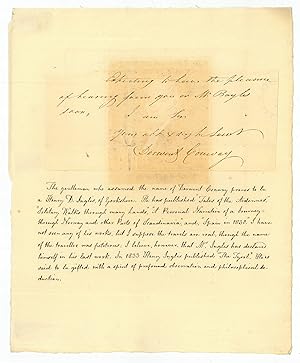 Expecting to have the pleasure
of hearing from you or Mr Bayley
soon,
I am Sir
Your obt & very hle Servt
Derwent Conway
The gentleman who assumed the name of Derwent Conway proves to be
a Henry D. Inglis, of Yorkshire. He has published "Tales of the Ardennes,"
Solitary Walks through many Lands," A Personal Narrative of a Journey
through Norway and other Parts of Scandinavia; and, Spain in 1830. I have
not seen any of his works, but I suppose the travels are real, though the name
of the traveller was fictitious. I believe, however that Mr. Inglis has declared
himself in his last work. In 1833 Henry Inglis published "The Tyrol". He is
said to be gifted with a spirit of profound observation and philosophical de-
duction.